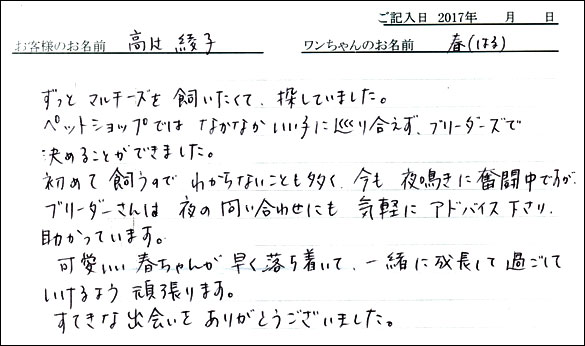 ご記入日 2017年　月　日
お客様のお名前　高辻 綾子　ワンちゃんのお名前　春(はる)
ずっと マルチーズを 飼いたくて、探していました。
ペットショップでは なかなか いい子に巡り合えず、ブリーダーズで
決めることができました。
初めて 飼うので わからないことも多く、今も 夜鳴きに奮闘中ですが、
ブリーダーさんは 夜の問い合わせにも 気軽に アドバイス下さり、
助かっています。
可愛いい 春ちゃんが 早く落ち着いて、一緒に成長して 過ごして
いけるよう 頑張ります。
すてきな 出会いを ありがとうございました。